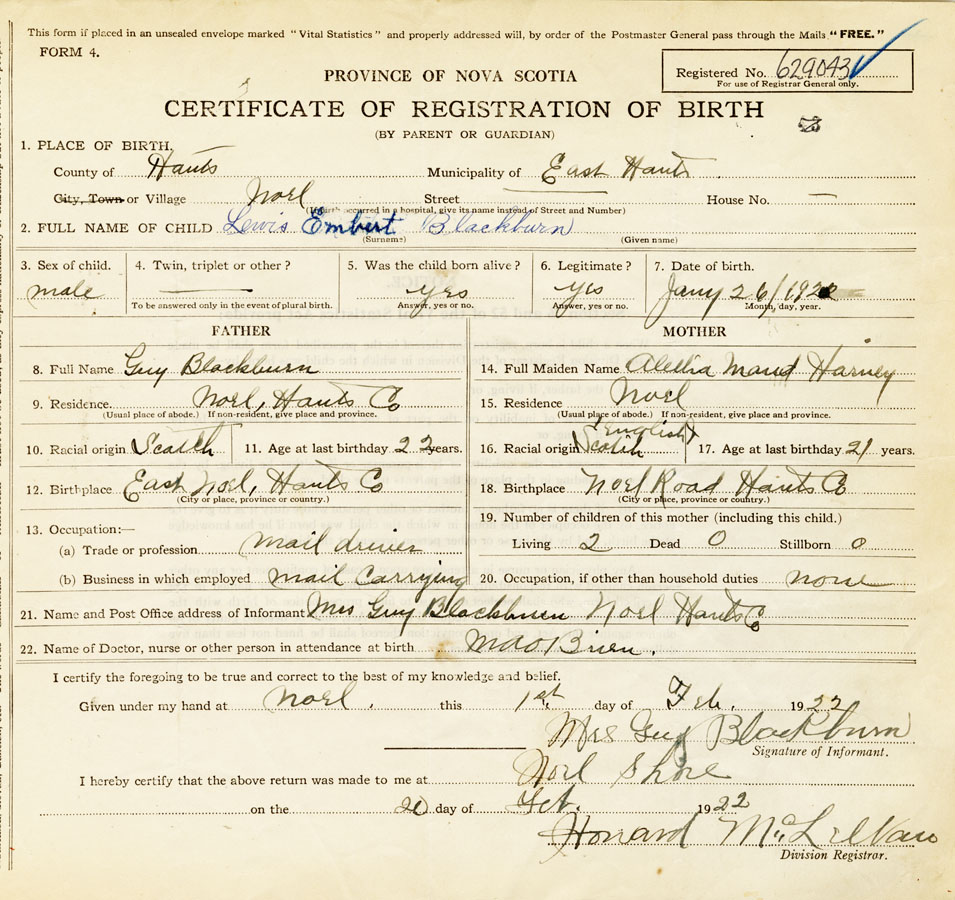 This form if placed in an unsealed envelope marked "Vital Statistics" and properly addressed will, by order of the Postmaster General pass through the Mails "FREE."
FORM 4.
Registered No. 629043
For use of Registrar General only.
PROVINCE OF NOVA SCOTIA
CERTIFICATE OF REGISTRATION OF BIRTH
(BY PARENT OR GUARDIAN)
1. PLACE OF BIRTH.
County of Hants Municipality of East Hants
City, Town or Village Noel Street House No. —
(If birth occurred in a hospital, give its name instead of Street and Number)
2. FULL NAME OF CHILD Lewis Embert Blackburn
(Surname) (Given name)
3. Sex of child. 4. Twin, triplet or other? 5. Was the child born alive? 6. Legitimate? 7. Date of birth.
male — yes yes Jany 26/1922
To be answered only in the event of plural birth. Answer, yes or no. Answer, yes or no. Month, day, year.
FATHER MOTHER
8. Full Name Guy Blackburn 14. Full Maiden Name Alethia Maud Harvey
9. Residence Noel, Hants Co 15. Residence Noel
(Usual place of abode.) If non-resident, give place and province. (Usual place of abode.) If non-resident, give place and province.
English
10. Racial origin Scotch 11. Age at last birthday 22 years. 16. Racial origin Scotch 17. Age at last birthday 21 years.
12. Birthplace East Noel, Hants Co 18. Birthplace Noel Road Hants Co
(City or place, province or country.) (City or place, province or country.)
13. Occupation:— 19. Number of children of this mother (including this child.)
(a) Trade or profession mail driver Living 2 Dead 0 Stillborn 0
(b) Business in which employed mail Carrying 20. Occupation, if other than household duties none
21. Name and Post Office address of Informant Mrs Guy Blackburn Noel Hants Co
22. Name of Doctor, nurse or other person in attendance at birth O'Brien.
I certify the foregoing to be true and correct to the best of my knowledge and belief.
Given under my hand at Noel. this 1st day of Feb. 1922
Mrs Guy Blackburn
Signature of Informant.
I hereby certify that the above return was made to me at Noel Shore
on the 20 day of Feb. 1922
Howard
Division Registrar.